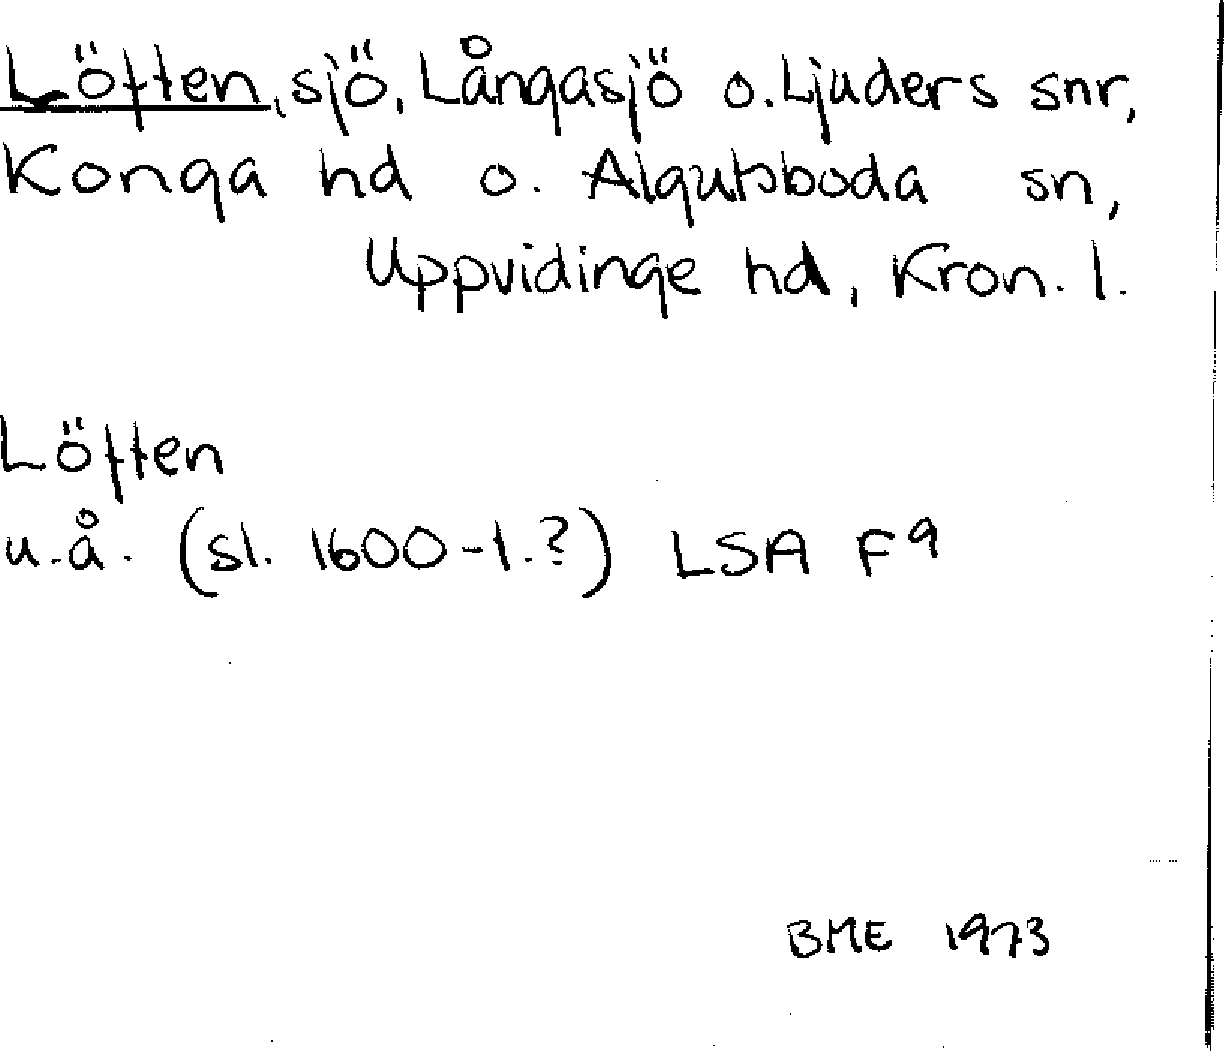 Löften, sjö, Långasjö o. Ljuders snr,
Konga hd o. Algutsboda sn,
Uppvidinge hd, Kron. l.
Löften
u.å. (sl. 1600-t.?) LSA F9
BME 1973